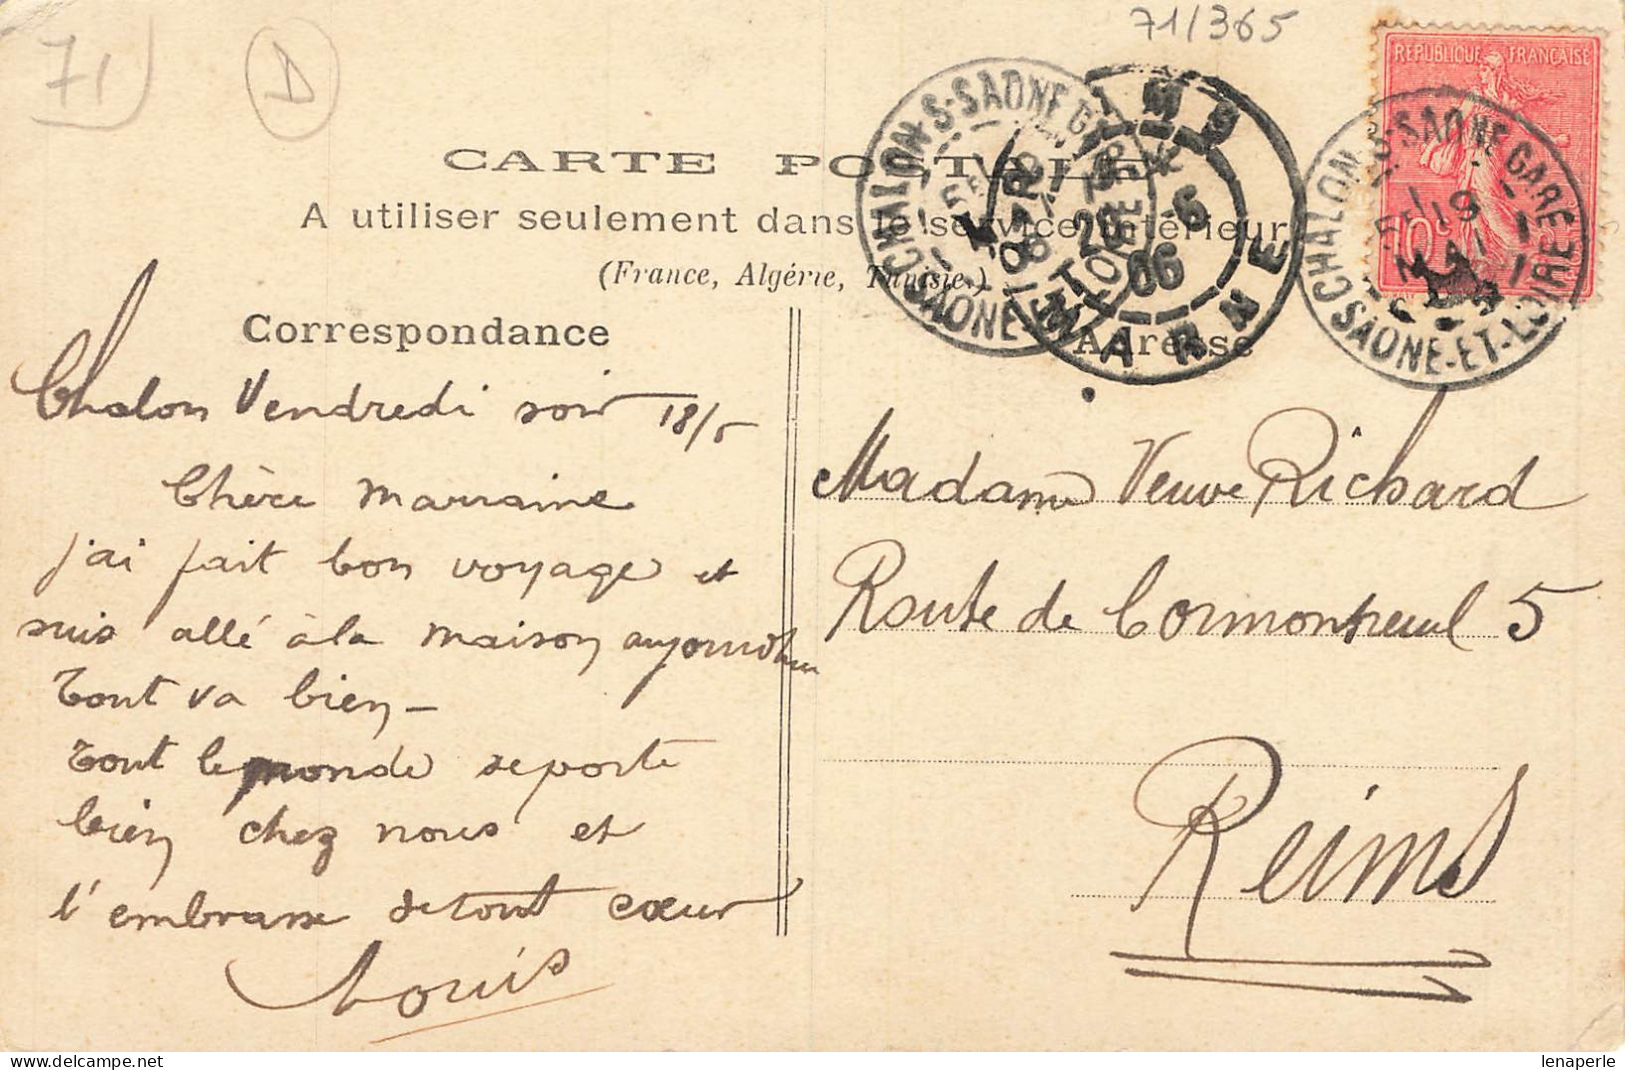 71
D
71/365
REPUBLIQUE FRANÇAISE
10c
CHALON-S-SAONE GARE
SAONE-ET-LOIRE
CHALON-S-SAONE GARE
SAONE-ET-LOIRE
MARNE
CARTE POSTALE
A utiliser seulement dans le service intérieur
(France, Algérie, Tunisie.)
Correspondance
Adresse
Chalon Vendredi soir 18/5
Chère Marraine
j'ai fait bon voyage et
suis allé à la maison aujourd'hui
Tout va bien -
Tout le monde se porte
bien chez nous et
t'embrasse de tout cœur
Louis
Madame Veuve Richard
Route de Cormontreuil 5
Reims
lenaperle